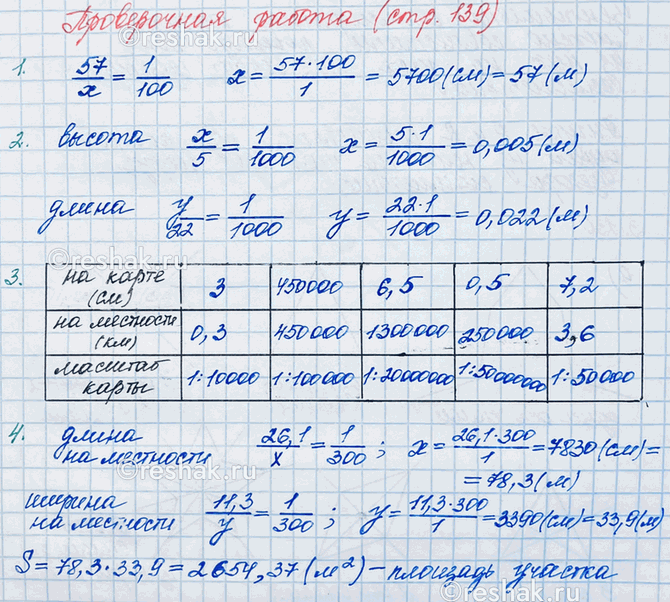 Проверочная работа (стр. 139)
1. 57/x = 1/100 x = 57·100/1 = 5700 (см) = 57 (м)
2. высота x/5 = 1/1000 x = 5·1/1000 = 0,005 (м)
длина y/22 = 1/1000 y = 22·1/1000 = 0,022 (м)
3. на карте (см) 3 450000 6,5 0,5 7,2
на местности (км) 0,3 450000 1300000 250000 3,6
масштаб карты 1:10000 1:100000 1:20000000 1:50000000 1:50000
4. длина на местности 26,1/x = 1/300 ; x = 26,1·300/1 = 7830 (см) =
= 78,3 (м)
ширина на местности 11,3/y = 1/300 ; y = 11,3·300/1 = 3390 (см) = 33,9 (м)
S = 78,3·33,9 = 2654,37 (м²) – площадь участка
©reshak.ru